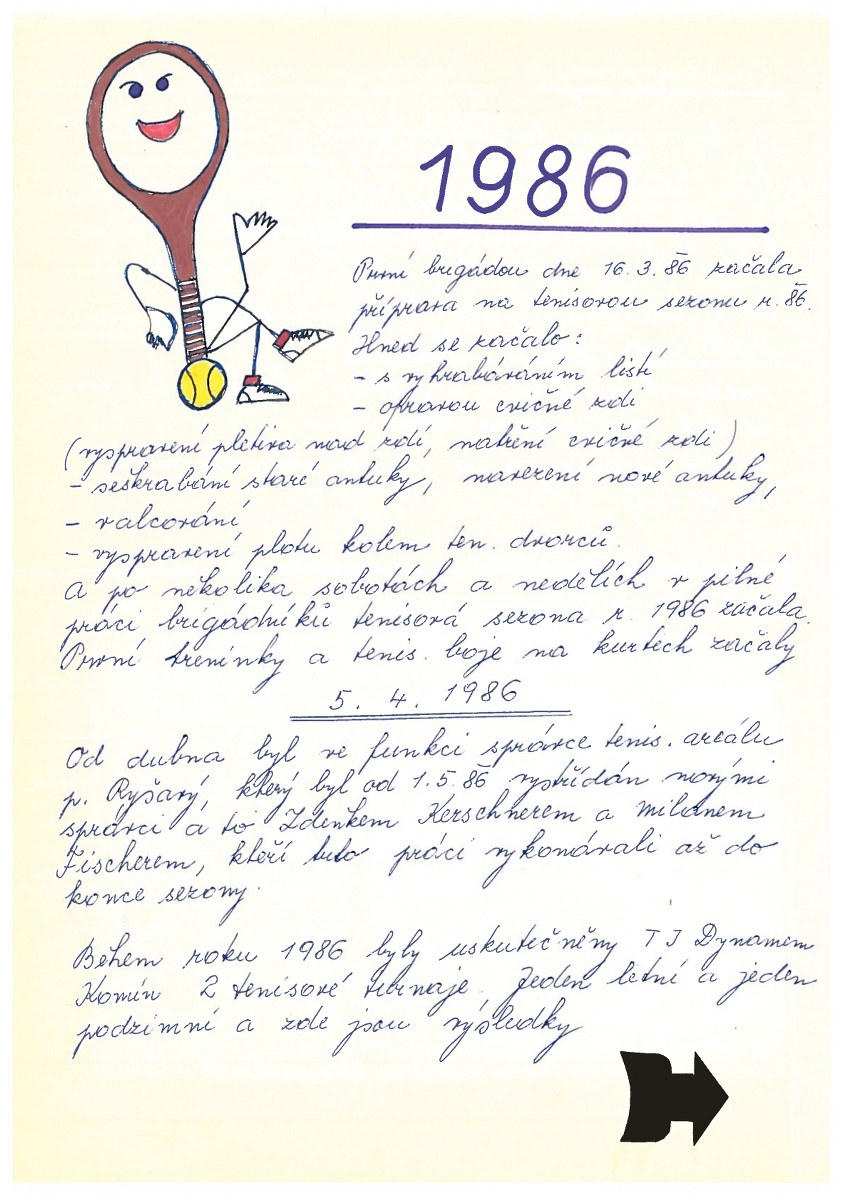 1986
První brigádou dne 16.3.86 začala
příprava na tenisovou sezonu r. 86.
Hned se začalo:
- s vyhrabáváním listí
- opravou cvičné zdi
(vyspravení pletiva nad zdí, natření cvičné zdi)
- seškrabání staré antuky, navezení nové antuky,
- valcování
- vyspravení plotu kolem ten. dvorců.
A po několika sobotách a nedělích v pilné
práci brigádníků tenisová sezona r. 1986 začala.
První tréninky a tenis. boje na kurtech začaly
5. 4. 1986
Od dubna byl ve funkci správce tenis. areálu
p. Ryšavý, který byl od 1.5.86 vystřídán novými
správci a to Zdeňkem Kerschnerem a Milanem
Fischerem, kteří tuto práci vykonávali až do
konce sezony.
Během roku 1986 byly uskutečněny TJ Dynamem
Komín 2 tenisové turnaje. Jeden letní a jeden
podzimní a zde jsou výsledky